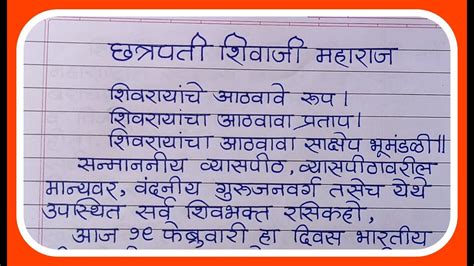 छत्रपती शिवाजी महाराज
शिवरायांचे आठवावे रूप।
शिवरायांचा आठवावा प्रताप।
शिवरायांचा आठवावा साक्षेप भूमंडळी॥
सन्माननीय व्यासपीठ, व्यासपीठावरील
मान्यवर, वंदनीय गुरुजनवर्ग तसेच येथे
उपस्थित सर्व शिवभक्त रसिकहो,
आज १९ फेब्रुवारी हा दिवस भारतीय